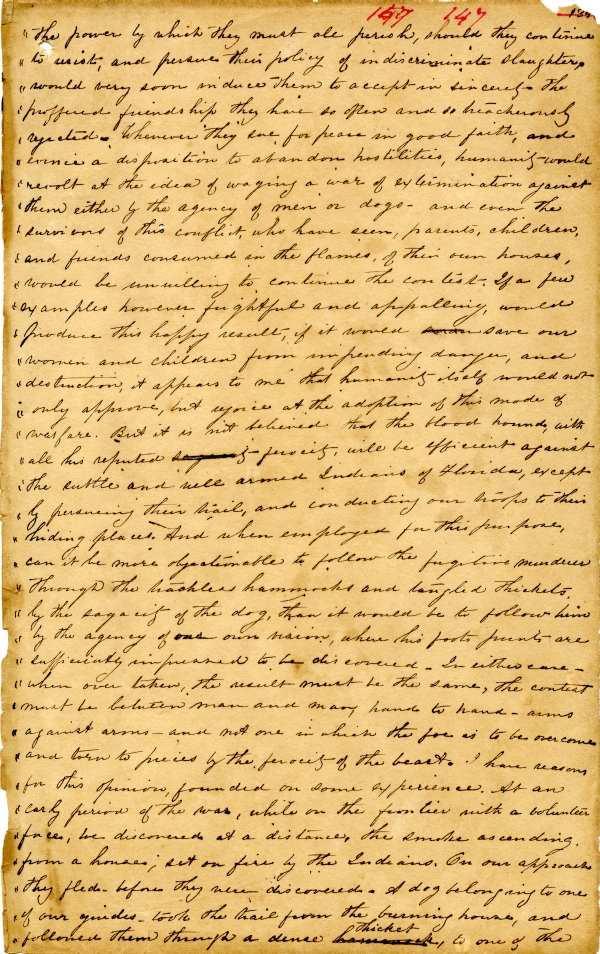 157 147 137
" the power by which they must all perish, should they continue
" to resist and persue their policy of indiscriminate slaughter,
" would very soon induce them to accept in sincerity the
" proffered friendship they have so often and so treacherously
" rejected. Wherever they sue for peace in good faith, and
" evince a disposition to abandon hostilities, humanity would
" revolt at the idea of waging a war of extermination against
" them either by the agency of men or dogs - and even the
" survivors of this conflict, who have seen, parents, children,
" and friends consumed in the flames, of their own houses,
" would be unwilling to continue the contest. If a few
" examples however frightful and appalling, would
" produce this happy result, if it would save our
" women and children from impending danger, and
" destruction, it appears to me that humanity itself would not
" only approve, but rejoice at the adoption of this mode of
" warfare. But it is not believed that the blood hound, with
" all his reputed sagacity ferocity, will be efficient against
" the subtle and well armed Indians of Florida, except
" by persueing their trail, and conducting our troops to their
" hiding places. And when employed for this purpose,
" can it be more objectionable to follow the fugitive murderer
" through the trackless hammocks and tangled thickets,
" by the sagacity of the dog, than it would be to follow him
" by the agency of our own vision, where his foots prints are
" sufficiently impressed to be discovered - In either case -
" when over taken, the result must be the same, the contest
" must be between man and man, hand to hand - arms
" against arms - and not one in which the foe is to be overcome
" and torn to pieces by the ferocity of the beast. I have reasons
" for this opinion, founded on some experience. At an
" early period of the war, while on the frontier with a volunteer
" force, we discovered at a distance, the smoke ascending,
" from a houses; set on fire by the Indians. On our approach
" they fled - before they were discovered. A dog belonging to one
" of our guides - took the trail from the burning houses, and
" followed them through a dense hammock, thicket to one of the